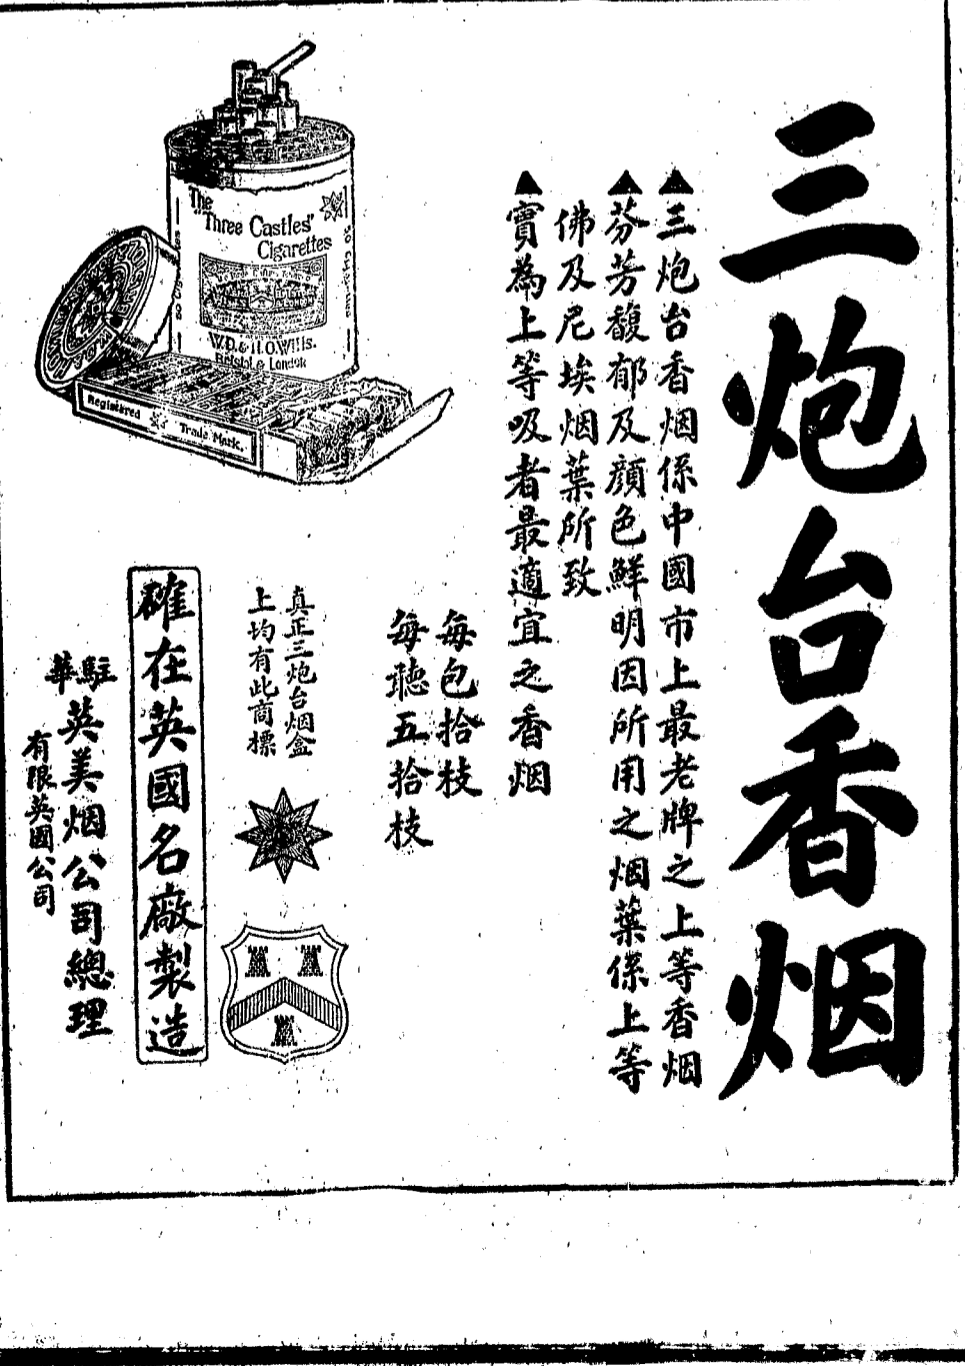 三炮台香烟
▲三炮台香烟係中國市上最老牌之上等香烟
▲芬芳馥郁及顏色鮮明因所用之烟葉係上等
佛及尼埃烟葉所致
▲實為上等吸者最適宜之香烟
每包拾枝
每聽五拾枝
真正三炮台烟盒
上均有此商標
確在英國名廠製造
駐華英美烟公司總理
有限英國公司
The
"Three Castles"
Cigarettes
W.D. & H.O. Wills.
Bristol & London
50 Cigarettes
Registered Trade Mark.